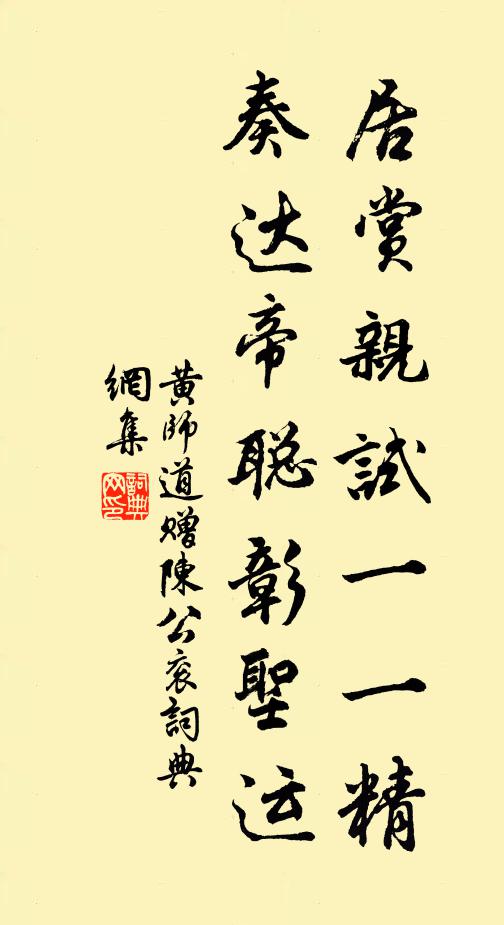 居赏親試一一精
奏达帝聪彰聖运
黄師道赠陳公衮詞典
網集
詞典
网印